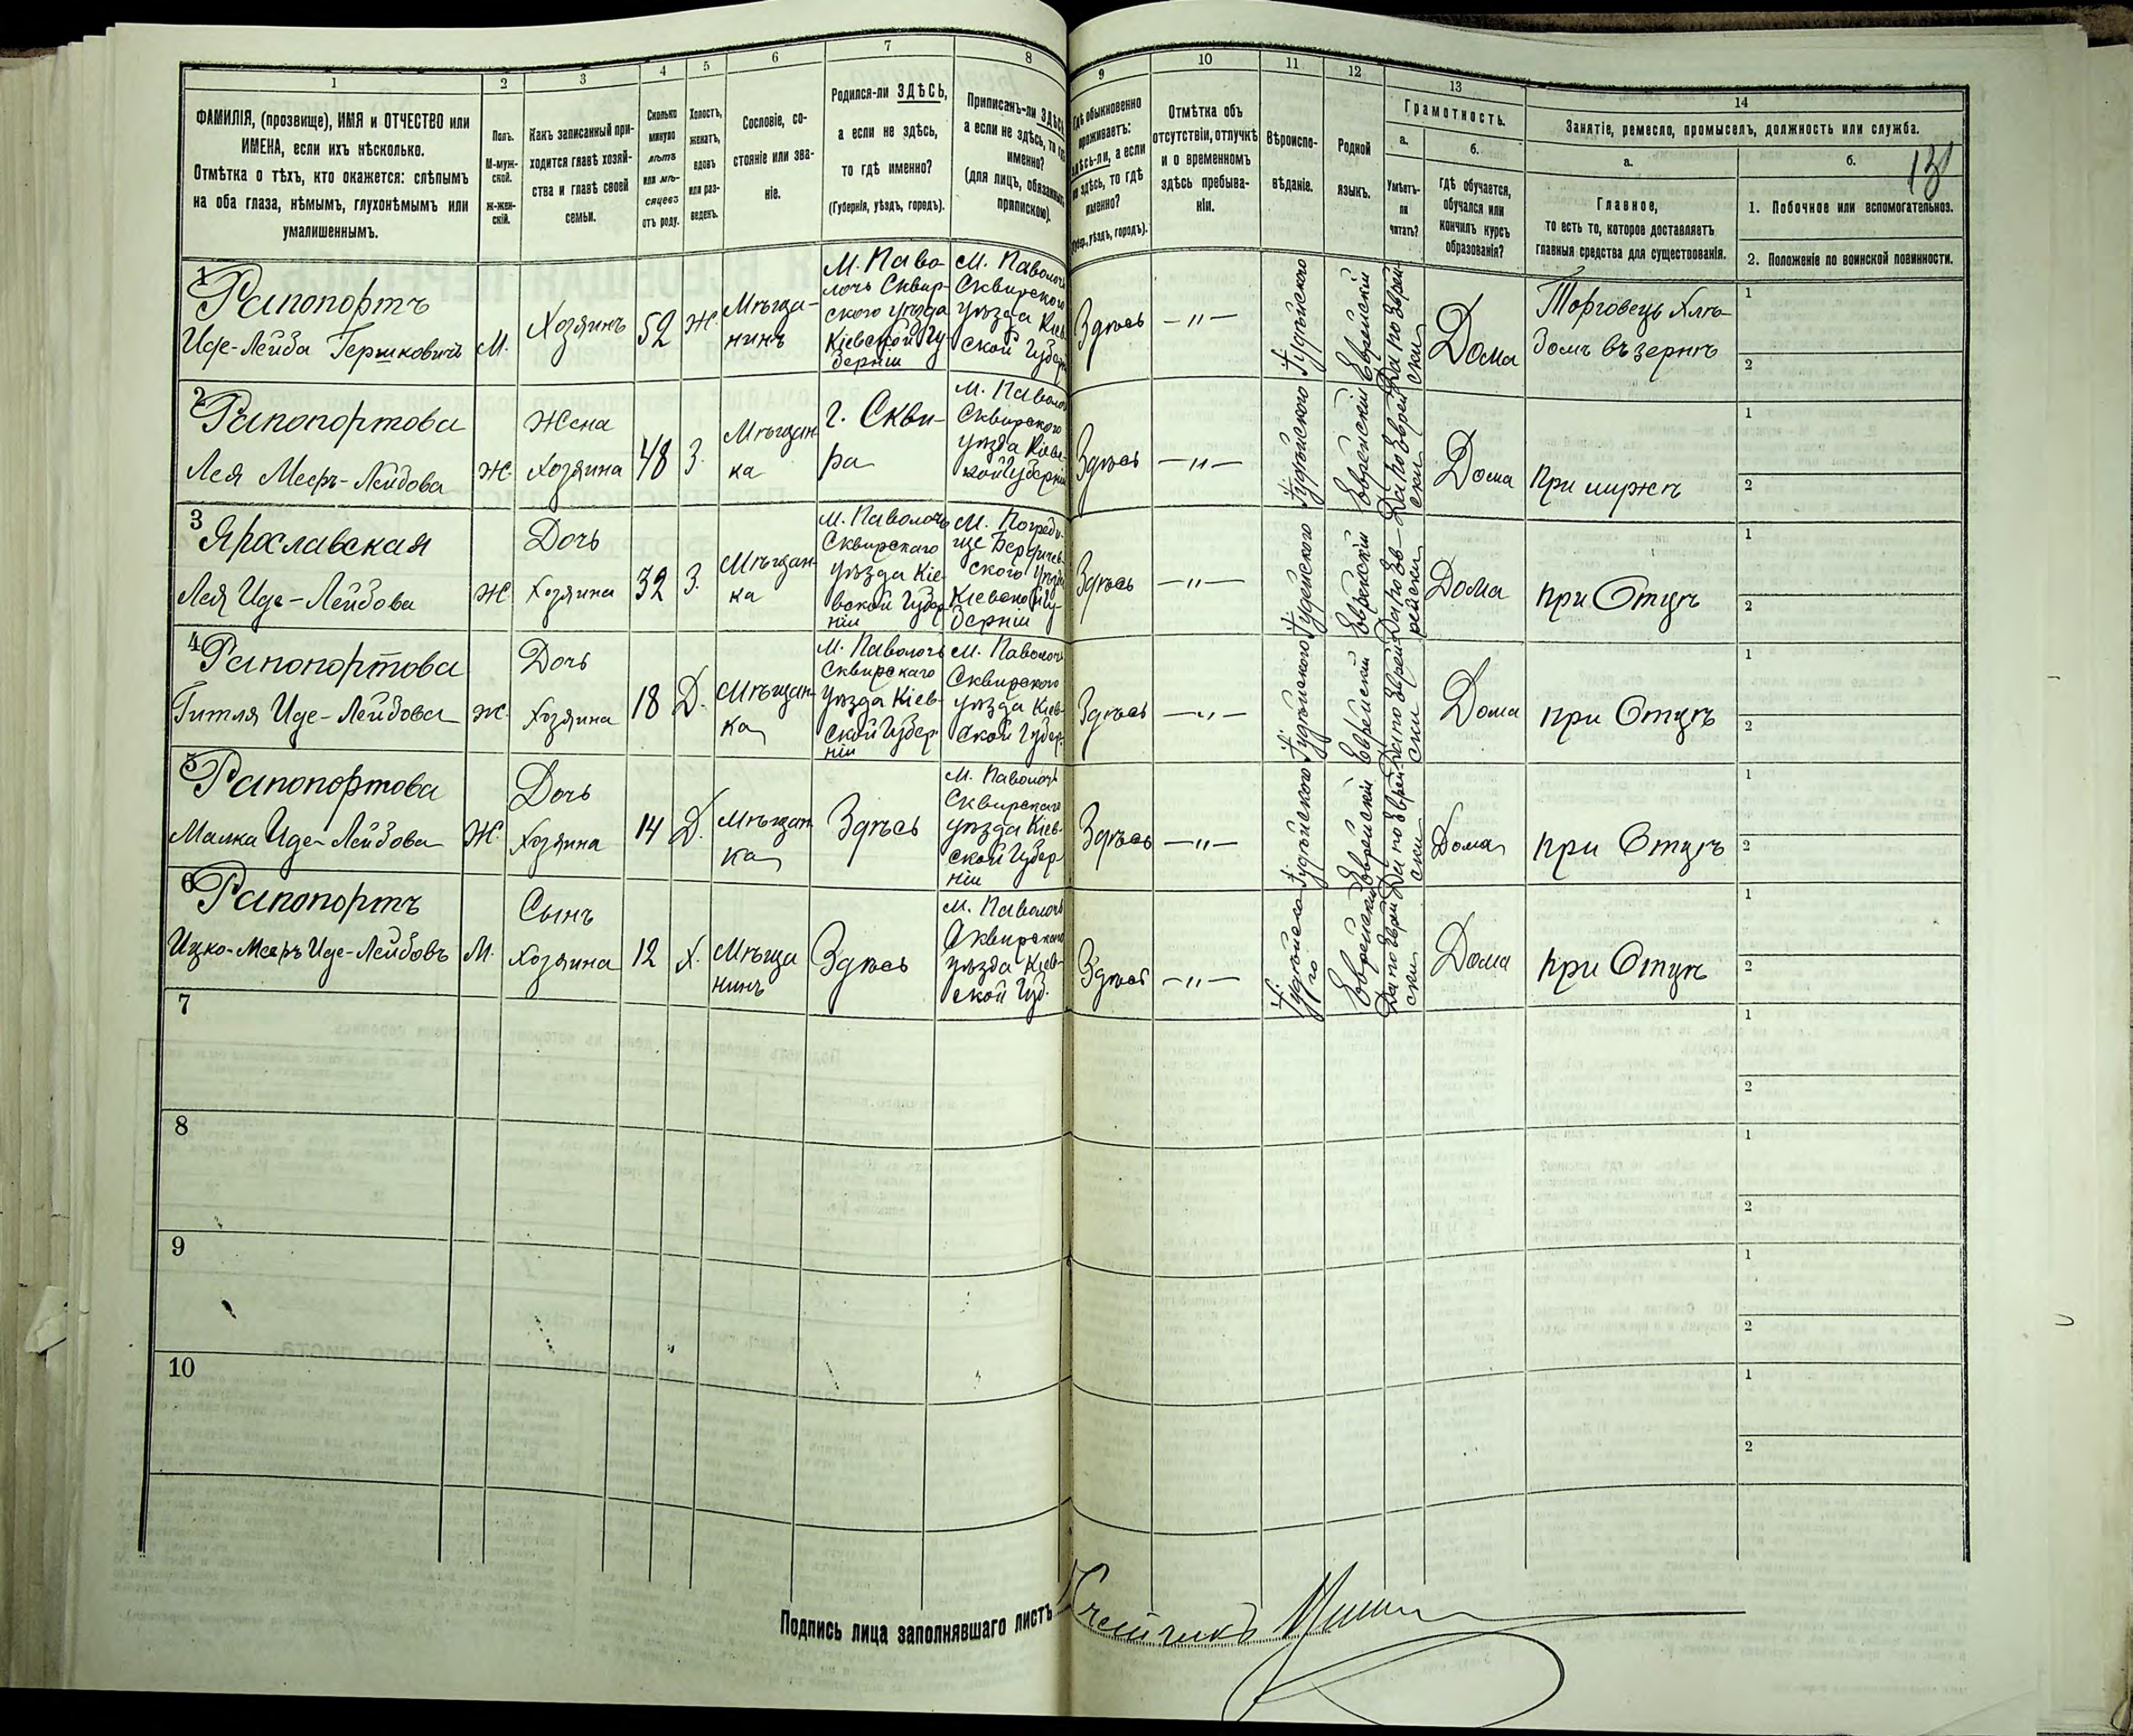 1
2
3
4
5
6
7
8
9
10
11
12
13
14
ФАМИЛІЯ, (прозвище), ИМЯ и ОТЧЕСТВО или
ИМЕНА, если ихъ нѣсколько.
Отмѣтка о тѣхъ, кто окажется: слѣпымъ
на оба глаза, нѣмымъ, глухонѣмымъ или
умалишеннымъ.
Полъ.
М-муж-
ской.
Ж-жен-
скій.
Какъ записанный при-
ходится главѣ хозяй-
ства и главѣ своей
семьи.
Сколько
минуло
лѣтъ
или мѣ-
сяцевъ
отъ роду.
Холостъ,
женатъ,
вдовъ
или раз-
веденъ.
Сословіе, со-
стояніе или зва-
ніе.
Родился-ли ЗДѢСЬ,
а если не здѣсь,
то гдѣ именно?
(Губернія, уѣздъ, городъ).
Приписанъ-ли ЗДѢСЬ,
а если не здѣсь, то гдѣ
именно?
(для лицъ, обязанныхъ
припискою).
Гдѣ обыкновенно
проживаетъ:
здѣсь-ли, а если
не здѣсь, то гдѣ
именно?
(Губер., уѣздъ, городъ).
Отмѣтка объ
отсутствіи, отлучкѣ
и о временномъ
здѣсь пребыва-
ніи.
Вѣроиспо-
вѣданіе.
Родной
языкъ.
Грамотность.
а.
Умѣетъ-
ли
читать?
б.
Гдѣ обучается,
обучался или
кончилъ курсъ
образованія?
Занятіе, ремесло, промыселъ, должность или служба.
а.
Главное,
то есть то, которое доставляетъ
главныя средства для существованія.
б.
1. Побочное или вспомогательное.
2. Положеніе по воинской повинности.
1
Рапопортъ
Иде-Лейба Гершковичъ
М.
Хозяинъ
52
Ж.
Мѣща-
нинъ
М. Паво-
лочь Сквир-
ского уѣзда
Кіевской Гу-
берніи
М. Паволочь
Сквирского
уѣзда Кіев
ской Губер
Здѣсь
—"—
Іудейского
Еврейскій
Да по Еврей-
ски
Дома
Торговецъ Хлѣ-
бомъ въ зернѣ
1
2
2
Рапопортова
Лея Мееръ-Лейбова
Ж.
Жена
Хозяина
48
З.
Мѣщан
ка
г. Скви-
ра
М. Паволоч
Сквирского
уѣзда Кіевс
кой Губерніи
Здѣсь
—"—
Іудейского
Еврейскій
Да по Еврей
ски
Дома
При мужѣ
1
2
3
Ярославская
Лея Иде-Лейбова
Ж
Дочь
Хозяина
32
З.
Мѣщан
ка
М. Паволочь
Сквирскаго
уѣзда Кіе-
вской Губер
ніи
М. Погреби-
ще Бердичев
ского уѣзда
Кіевской Гу
берніи
Здѣсь
—"—
Іудейского
Еврейскій
Да по Ев-
рейски
Дома
при Отцѣ
1
2
4
Рапопортова
Гитля Иде-Лейбова
Ж.
Дочь
Хозяина
18
Д.
Мѣщан
ка
М. Паволочь
Сквирскаго
уѣзда Кіев-
ской Губер
ніи
М. Паволочь
Сквирского
уѣзда Кіев
ской Губер.
Здѣсь
—"—
Іудейского
Еврейскій
Да по Еврей
ски
Дома
при Отцѣ
1
2
5
Рапопортова
Малка Иде-Лейбова
Ж.
Дочь
Хозяина
14
Д.
Мѣщан
ка
Здѣсь
М. Паволочь
Сквирскаго
уѣзда Кіев-
ской Губер
ніи
Здѣсь
—"—
Іудейского
Еврейскій
Да по Еврей-
ски
Дома
при Отцѣ
1
2
6
Рапопортъ
Ицко-Мееръ Иде-Лейбовъ
М.
Сынъ
Хозяина
12
Х.
Мѣща
нинъ
Здѣсь
М. Паволочь
Сквирскаго
уѣзда Кіев-
ской Губ.
Здѣсь
—"—
Іудейско
го
Еврейскій
Да по Еврей
ски
Дома
при Отцѣ
1
2
7
1
2
8
1
2
9
1
2
10
1
2
Подпись лица заполнявшаго листъ
Счетчикъ